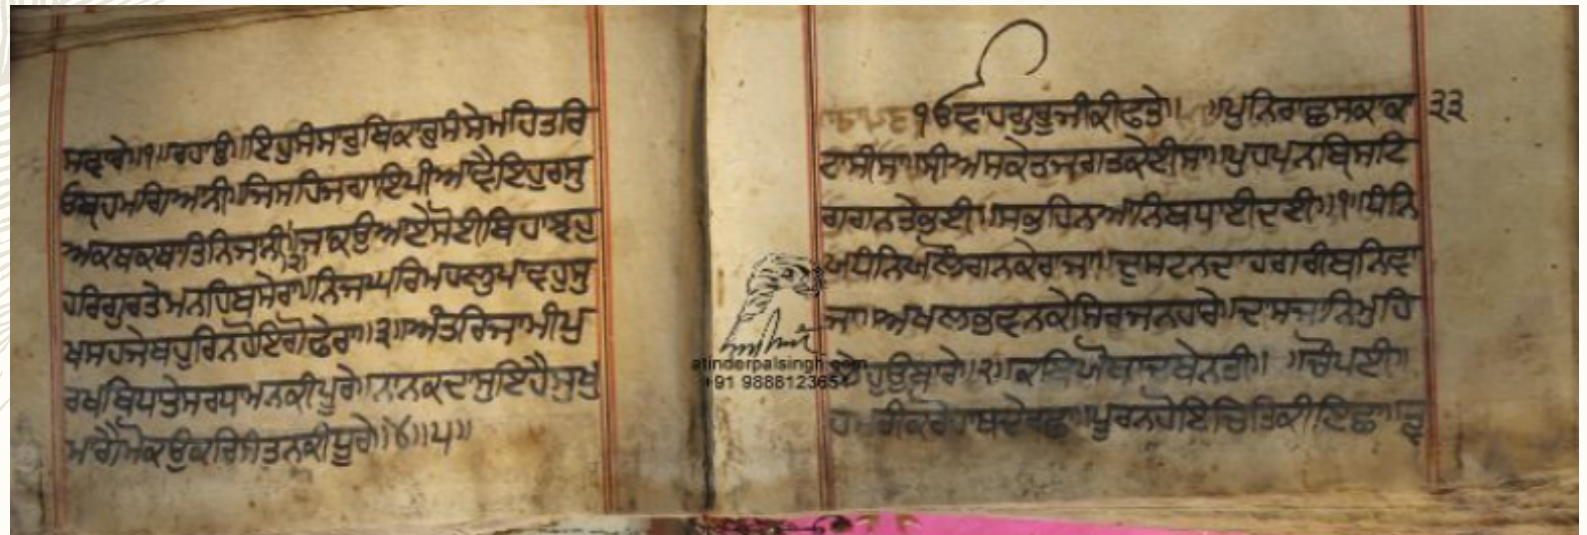 ਸਵਾਰੇ॥੧॥ਰਹਾਉ॥ਇਹੁਸੰਸਾਰੁਬਿਕਾਰੁਸੰਸੇਮਹਿਤਰਿ
ਓਬ੍ਰਹਮਗਿਆਨੀ॥ਜਿਸਹਿਜਗਾਇਪੀਆਵੈਇਹੁਰਸੁ
ਅਕਥਕਥਾਤਿਨਿਜਨੀ॥੨॥ਜਾਕਉਆਏਸੋਈਬਿਹਾਝਹੁ
ਹਰਿਗੁਰਤੇਮਨਹਿਬਸੇਰਾ॥ਨਿਜਘਰਿਮਹਲੁਪਾਵਹੁਸੁ
ਖਸਹਜੇਬਹੁਰਿਨਹੋਇਗੋਫੇਰਾ॥੩॥ਅੰਤਰਿਜਾਮੀਪੁ
ਰਖਬਿਧਾਤੇਸਰਧਾਮਨਕੀਪੂਰੇ॥ਨਾਨਕਦਾਸੁਇਹੈਸੁਖੁ
ਮਾਗੈਮੋਕਉਕਰਿਸੰਤਨਕੀਧੂਰੇ॥੪॥੫॥
ੴਵਾਹਗੁਰੂਜੀਕੀਫਤੇ॥ ॥ਪੁਨਿਰਾਛਸਕਾਕਾ ੩੩
ਟਾਸੀਸਾ॥ਸੀਅਸਕੇਤਜਗਤਕੇਈਸਾ॥ਪੁਹਪਨਬ੍ਰਿਸਟਿ
ਗਗਨਤੇਭਈ॥ਸਭਹਿਨਆਨਿਬਧਾਈਦਈ॥੧॥ਧੰਨਿ
ਯਧੰਨਿਯਲੋਗਨਕੇਰਾਜਾ॥ਦੁਸਟਨਦਾਹਗਰੀਬਨਿਵਾ
ਜਾ॥ਅਖਲਭਵਨਕੇਸਿਰਜਨਹਾਰੇ॥ਦਾਸਜਾਨਿਮੁਹਿ
ਲੇਹੁਉਬਾਰੇ॥੨॥ਕਬਿਯੋਬਾਚਬੇਨਤੀ॥ ॥ਚੌਪਈ॥
ਹਮਰੀਕਰੋਹਾਥਦੇਰਛਾ॥ਪੂਰਨਹੋਇਚਿਤਕੀਇਛਾ॥
atinderpalsingh.com
+91 9888123654